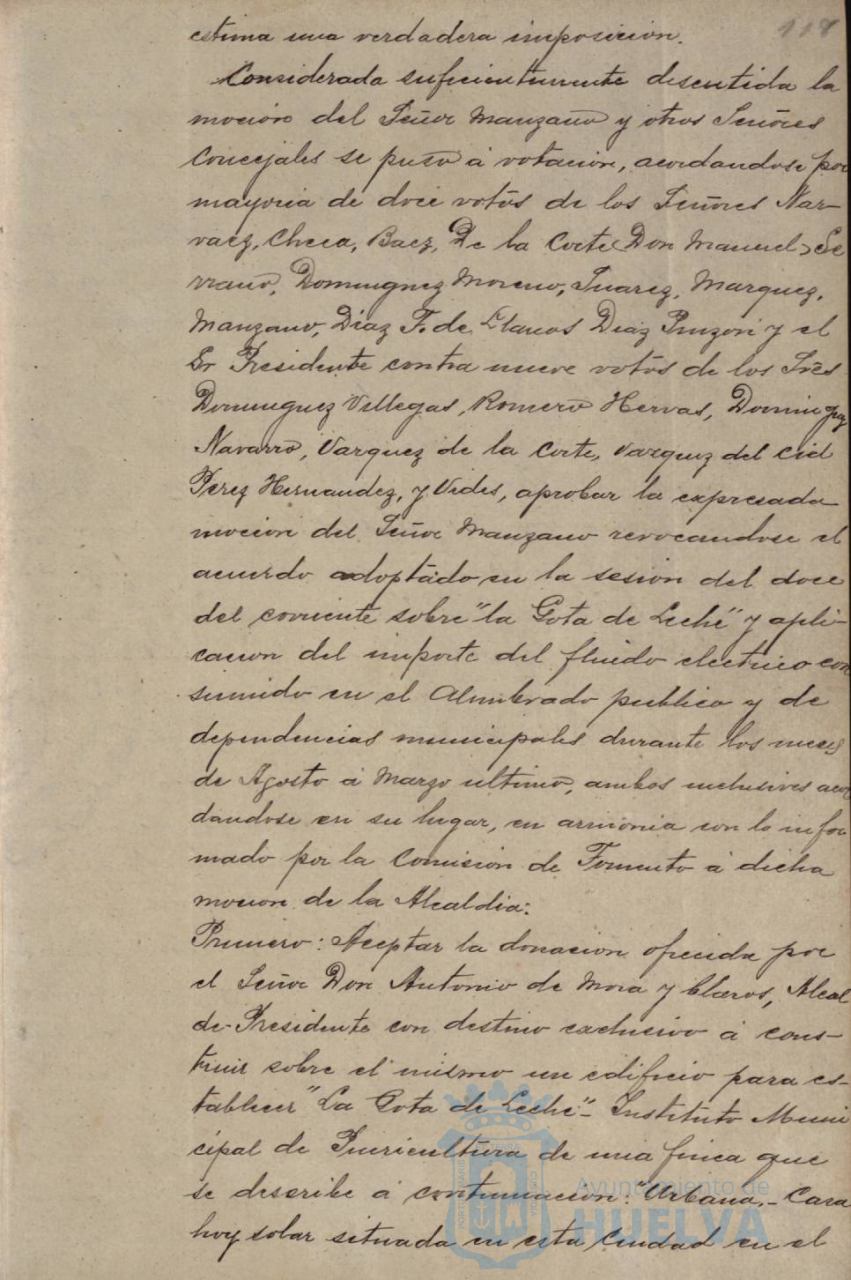 118
estima una verdadera imposicion.
Considerada suficientemente discutida la
moción del Señor Manzano y otros Señores
Concejales se puso á votación, acordandose por
mayoria de doce votos de los Señores Nar-
vaez, Checa, Baez, De la Corte (Don Manuel) Se
rrano, Dominguez Moreno, Suarez, Marquez,
Manzano, Diaz F. de Llanos Diaz Pinzon y el
Sr Presidente contra nueve votos de los Sres
Dominguez Villegas, Romero Hervas, Dominguez
Navarro, Vazquez de la Corte, Vazquez del Cid
Perez Hernandez, y Vides, aprobar la expresada
mocion del Señor Manzano revocandose el
acuerdo adoptado en la sesion del doce
del corriente sobre "la Gota de Leche" y apli-
cacion del importe del fluido electrico con
sumido en el Alumbrado publico y de
dependencias municipales durante los meses
de Agosto á Marzo ultimo, ambos inclusives acor
dandose en su lugar, en armonia con lo infor
mado por la Comision de Fomento á dicha
mocion de la Alcaldia:
Primero: Aceptar la donacion ofrecida por
el Señor Don Antonio de Mora y Claros, Alcal
de-Presidente con destino exclusivo á cons-
truir sobre el mismo un edificio para es-
tablecer "La Gota de Leche"- Instituto Muni
cipal de Puericultura de una finca que
se describe á continuacion: "Urbana.- Casa
hoy solar situada en esta Ciudad en el
Ayuntamiento de
HUELVA